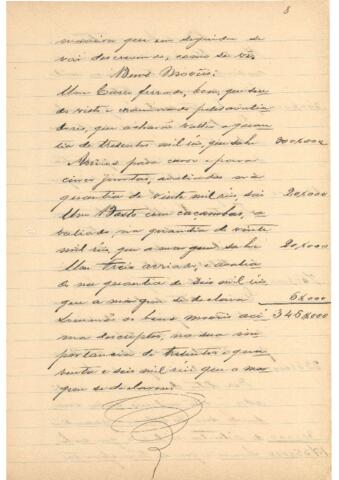 8
maneira que em seguida se
vai descrevendo, como se vê.
Bens Moveis.
Um Carro ferrado, bom, que sendo
visto e examinado pelos avalia
dores, que acharão valer a quan
tia de tresentos mil réis, que sahe 300,000
Arreios para carro e para
cinco juntas, avaliados na
quantia de vinte mil réis, sai 20,000
Um Basto com cacambas, a
valiado na quantia de vinte
mil réis, que a margem sahe 20,000
Um treis arriado, e avalia
do na quantia de seis mil réis,
que a margem se declara 6,000
Sommão os bens moveis aci 346,000
ma descriptos, na sua im
portancia de tresentos e qua
renta e seis mil réis que a mar
gem se declarou.